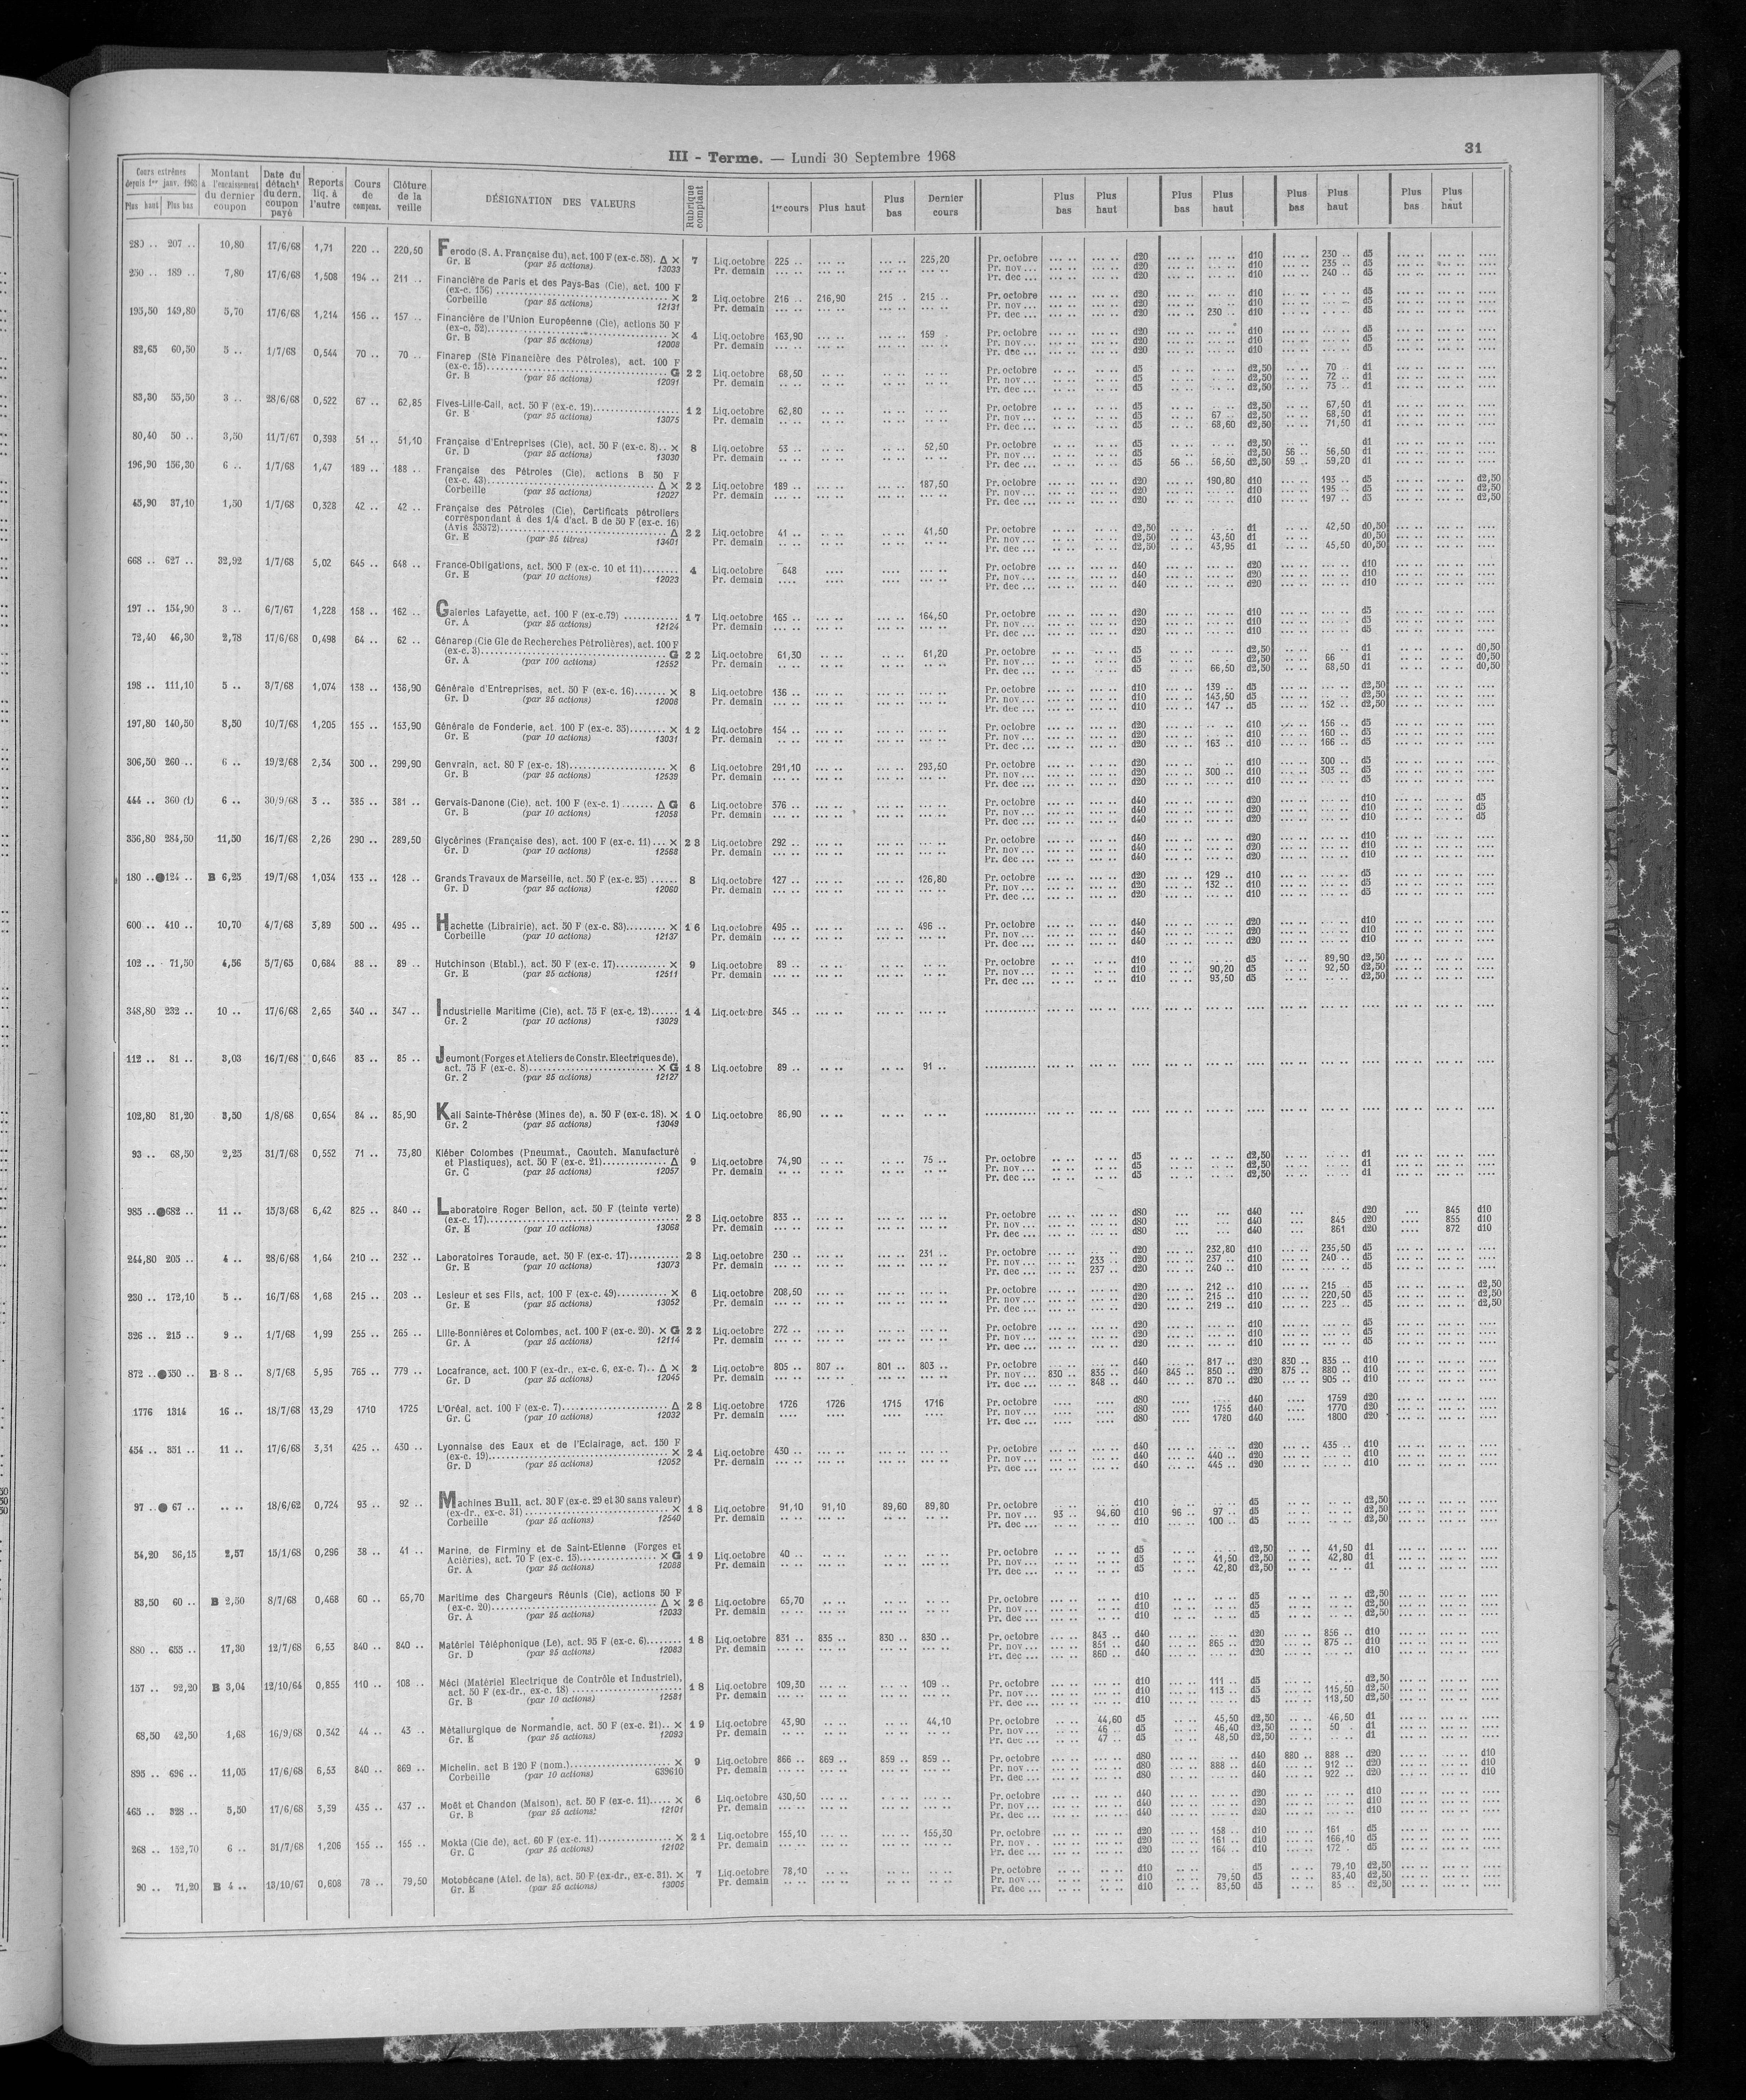 III - Terme. — Lundi 30 Septembre 1968
31
Cours extrêmes depuis 1er janv. 1968 Plus haut Plus bas | Montant à l'encaissement du dernier coupon | Date du détacht du dern. coupon payé | Reports liq. à l'autre | Cours de compens. | Clôture de la veille | DÉSIGNATION DES VALEURS | Rubrique comptant | 1er cours | Plus haut | Plus bas | Dernier cours | Plus bas | Plus haut | Plus bas | Plus haut | Plus bas | Plus haut | Plus bas | Plus haut
280 .. 207 .. 10,80 17/6/68 1,71 220 .. 220,50 Ferodo (S. A. Française du), act. 100 F (ex-c. 58). Δ × 7 Liq.octobre 225 .. 225,20 Pr. octobre d20 d10 230 .. d5
Gr. E (par 25 actions) 13033 Pr. demain Pr. nov... d20 d10 235 .. d5
Pr. dec ... d20 d10 240 .. d5
250 .. 189 .. 7,80 17/6/68 1,508 194 .. 211 .. Financière de Paris et des Pays-Bas (Cie), act. 100 F
(ex-c. 156) × 2 Liq.octobre 216 .. 216,90 215 .. 215 .. Pr. octobre d20 d10 d5
Corbeille (par 25 actions) 12131 Pr. demain Pr. nov... d20 d10 d5
Pr. dec ... d20 230 .. d10 d5
195,50 149,80 5,70 17/6/68 1,214 156 .. 157 .. Financière de l'Union Européenne (Cie), actions 50 F
(ex-c. 52) × 4 Liq.octobre 163,90 159 .. Pr. octobre d20 d10 d5
Gr. B (par 25 actions) 12008 Pr. demain Pr. nov... d20 d10 d5
Pr. dec ... d20 d10 d5
82,65 60,50 5 .. 1/7/68 0,544 70 .. 70 .. Finarep (Sté Financière des Pétroles), act. 100 F
(ex-c. 15) G 22 Liq.octobre 68,50 Pr. octobre d5 d2,50 70 .. d1
Gr. B (par 25 actions) 12091 Pr. demain Pr. nov... d5 d2,50 72 .. d1
Pr. dec ... d5 d2,50 73 .. d1
83,30 53,50 3 .. 28/6/68 0,522 67 .. 62,85 Fives-Lille-Cail, act. 50 F (ex-c. 19) 12 Liq.octobre 62,80 Pr. octobre d5 d2,50 67,50 d1
Gr. E (par 25 actions) 13075 Pr. demain Pr. nov... d5 67 .. d2,50 68,50 d1
Pr. dec ... d5 68,60 d2,50 71,50 d1
80,40 50 .. 3,50 11/7/67 0,393 51 .. 51,10 Française d'Entreprises (Cie), act. 50 F (ex-c. 8).. × 8 Liq.octobre 53 .. 52,50 Pr. octobre d5 d2,50 d1
Gr. D (par 25 actions) 13030 Pr. demain Pr. nov... d5 d2,50 56 .. 56,50 d1
Pr. dec ... d5 56 .. 56,50 d2,50 59 .. 59,20 d1
196,90 156,30 6 .. 1/7/68 1,47 189 .. 188 .. Française des Pétroles (Cie), actions B 50 F
(ex-c. 43) Δ × 22 Liq.octobre 189 .. 187,50 Pr. octobre d20 190,80 d10 193 .. d5 d2,50
Corbeille (par 25 actions) 12027 Pr. demain Pr. nov... d20 d10 195 .. d5 d2,50
Pr. dec ... d20 d10 197 .. d5 d2,50
45,90 37,10 1,50 1/7/68 0,328 42 .. 42 .. Française des Pétroles (Cie), Certificats pétroliers
correspondant à des 1/4 d'act. B de 50 F (ex-c. 16)
(Avis 35372) Δ 22 Liq.octobre 41 .. 41,50 Pr. octobre d2,50 d1 42,50 d0,50
Gr. E (par 25 titres) 13401 Pr. demain Pr. nov... d2,50 43,50 d1 d0,50
Pr. dec ... d2,50 43,95 d1 45,50 d0,50
668 .. 627 .. 32,92 1/7/68 5,02 645 .. 648 .. France-Obligations, act. 500 F (ex-c. 10 et 11) 4 Liq.octobre 648 Pr. octobre d40 d20 d10
Gr. E (par 10 actions) 12023 Pr. demain Pr. nov... d40 d20 d10
Pr. dec ... d40 d20 d10
197 .. 154,90 3 .. 6/7/67 1,228 158 .. 162 .. Galeries Lafayette, act. 100 F (ex-c.79) 17 Liq.octobre 165 .. 164,50 Pr. octobre d20 d10 d5
Gr. A (par 25 actions) 12124 Pr. demain Pr. nov... d20 d10 d5
Pr. dec ... d20 d10 d5
72,40 46,30 2,78 17/6/68 0,498 64 .. 62 .. Génarep (Cie Gle de Recherches Pétrolières), act. 100 F
(ex-c. 3) G 22 Liq.octobre 61,30 61,20 Pr. octobre d5 d2,50 d1 d0,50
Gr. A (par 100 actions) 12552 Pr. demain Pr. nov... d5 d2,50 66 d1 d0,50
Pr. dec ... d5 66,50 d2,50 68,50 d1 d0,50
198 .. 111,10 5 .. 3/7/68 1,074 138 .. 136,90 Générale d'Entreprises, act. 50 F (ex-c. 16) × 8 Liq.octobre 136 .. Pr. octobre d10 139 .. d5 d2,50
Gr. D (par 25 actions) 12008 Pr. demain Pr. nov... d10 143,50 d5 d2,50
Pr. dec ... d10 147 .. d5 152 .. d2,50
197,80 140,50 8,50 10/7/68 1,205 155 .. 153,90 Générale de Fonderie, act. 100 F (ex-c. 35) × 12 Liq.octobre 154 .. Pr. octobre d20 d10 156 .. d5
Gr. E (par 10 actions) 13031 Pr. demain Pr. nov... d20 d10 160 .. d5
Pr. dec ... d20 163 .. d10 166 .. d5
306,50 260 .. 6 .. 19/2/68 2,34 300 .. 299,90 Genvrain, act. 80 F (ex-c. 18) × 6 Liq.octobre 291,10 293,50 Pr. octobre d20 d10 300 .. d5
Gr. B (par 25 actions) 12539 Pr. demain Pr. nov... d20 300 .. d10 303 .. d5
Pr. dec ... d20 d10 d5
444 .. 360 (1) 6 .. 30/9/68 3 .. 385 .. 381 .. Gervais-Danone (Cie), act. 100 F (ex-c. 1) Δ G 6 Liq.octobre 376 .. Pr. octobre d40 d20 d10 d5
Gr. B (par 10 actions) 12058 Pr. demain Pr. nov... d40 d20 d10 d5
Pr. dec ... d40 d20 d10 d5
356,80 284,50 11,50 16/7/68 2,26 290 .. 289,50 Glycérines (Française des), act. 100 F (ex-c. 11) × 23 Liq.octobre 292 .. Pr. octobre d40 d20 d10
Gr. D (par 10 actions) 12568 Pr. demain Pr. nov... d40 d20 d10
Pr. dec ... d40 d20 d10
180 .. ●124 .. B 6,25 19/7/68 1,034 133 .. 128 .. Grands Travaux de Marseille, act. 50 F (ex-c. 25) 8 Liq.octobre 127 .. 126,80 Pr. octobre d20 129 .. d10 d5
Gr. D (par 25 actions) 12060 Pr. demain Pr. nov... d20 132 .. d10 d5
Pr. dec ... d20 d10 d5
600 .. 410 .. 10,70 4/7/68 3,89 500 .. 495 .. Hachette (Librairie), act. 50 F (ex-c. 83) × 16 Liq.octobre 495 .. 496 .. Pr. octobre d40 d20 d10
Corbeille (par 10 actions) 12137 Pr. demain Pr. nov... d40 d20 d10
Pr. dec ... d40 d20 d10
102 .. 71,50 4,56 5/7/65 0,684 88 .. 89 .. Hutchinson (Etabl.), act. 50 F (ex-c. 17) × 9 Liq.octobre 89 .. Pr. octobre d10 d5 89,90 d2,50
Gr. E (par 25 actions) 12511 Pr. demain Pr. nov... d10 90,20 d5 92,50 d2,50
Pr. dec ... d10 93,50 d5 d2,50
348,80 232 .. 10 .. 17/6/68 2,65 340 .. 347 .. Industrielle Maritime (Cie), act. 75 F (ex-c. 12) 14 Liq.octobre 345 ..
Gr. 2 (par 10 actions) 13029
112 .. 81 .. 3,03 16/7/68 0,646 83 .. 85 .. Jeumont (Forges et Ateliers de Constr. Electriques de),
act. 75 F (ex-c. 8) × G 18 Liq.octobre 89 .. 91 ..
Gr. 2 (par 25 actions) 12127
102,80 81,20 3,50 1/8/68 0,654 84 .. 85,90 Kali Sainte-Thérèse (Mines de), a. 50 F (ex-c. 18). × 10 Liq.octobre 86,90
Gr. 2 (par 25 actions) 13049
93 .. 68,50 2,25 31/7/68 0,552 71 .. 73,80 Kléber Colombes (Pneumat., Caoutch. Manufacturé
et Plastiques), act. 50 F (ex-c. 21) Δ 9 Liq.octobre 74,90 75 .. Pr. octobre d5 d2,50 d1
Gr. C (par 25 actions) 12057 Pr. demain Pr. nov... d5 d2,50 d1
Pr. dec ... d5 d2,50 d1
985 .. ●682 .. 11 .. 15/3/68 6,42 825 .. 840 .. Laboratoire Roger Bellon, act. 50 F (teinte verte)
(ex-c. 17) 23 Liq.octobre 833 .. Pr. octobre d80 d40 d20 845 d10
Gr. E (par 10 actions) 13068 Pr. demain Pr. nov... d80 d40 845 d20 855 d10
Pr. dec ... d80 d40 861 d20 872 d10
244,80 205 .. 4 .. 28/6/68 1,64 210 .. 232 .. Laboratoires Toraude, act. 50 F (ex-c. 17) 23 Liq.octobre 230 .. 231 .. Pr. octobre d20 232,80 d10 235,50 d5
Gr. E (par 10 actions) 13073 Pr. demain Pr. nov... 233 .. d20 237 .. d10 240 .. d5
Pr. dec ... 237 .. d20 240 .. d10 d5
230 .. 172,10 5 .. 16/7/68 1,68 215 .. 203 .. Lesieur et ses Fils, act. 100 F (ex-c. 49) × 6 Liq.octobre 208,50 Pr. octobre d20 212 .. d10 215 .. d5 d2,50
Gr. E (par 25 actions) 13052 Pr. demain Pr. nov... d20 215 .. d10 220,50 d5 d2,50
Pr. dec ... d20 219 .. d10 223 .. d5 d2,50
326 .. 215 .. 9 .. 1/7/68 1,99 255 .. 265 .. Lille-Bonnières et Colombes, act. 100 F (ex-c. 20). × G 22 Liq.octobre 272 .. Pr. octobre d20 d10 d5
Gr. A (par 25 actions) 12114 Pr. demain Pr. nov... d20 d10 d5
Pr. dec ... d20 d10 d5
872 .. ●350 .. B 8 .. 8/7/68 5,95 765 .. 779 .. Locafrance, act. 100 F (ex-dr., ex-c. 6, ex-c. 7).. Δ × 2 Liq.octobre 805 .. 807 .. 801 .. 803 .. Pr. octobre d40 817 .. d20 830 .. 835 .. d10
Gr. D (par 25 actions) 12045 Pr. demain Pr. nov... 830 .. 835 .. d40 845 .. 850 .. d20 875 .. 880 .. d10
Pr. dec ... 848 .. d40 870 .. d20 905 .. d10
1776 1314 16 .. 18/7/68 13,29 1710 1725 L'Oréal, act. 100 F (ex-c. 7) Δ 28 Liq.octobre 1726 1726 1715 1716 Pr. octobre d80 d40 1759 d20
Gr. C (par 10 actions) 12032 Pr. demain Pr. nov... d80 1755 d40 1770 d20
Pr. dec ... d80 1780 d40 1800 d20
454 .. 351 .. 11 .. 17/6/68 3,31 425 .. 430 .. Lyonnaise des Eaux et de l'Eclairage, act. 150 F
(ex-c. 19) × 24 Liq.octobre 430 .. Pr. octobre d40 d20 435 .. d10
Gr. D (par 25 actions) 12052 Pr. demain Pr. nov... d40 440 .. d20 d10
Pr. dec ... d40 445 .. d20 d10
97 .. ● 67 .. 18/6/62 0,724 93 .. 92 .. Machines Bull, act. 30 F (ex-c. 29 et 30 sans valeur)
(ex-dr., ex-c. 31) × 18 Liq.octobre 91,10 91,10 89,60 89,80 Pr. octobre d10 d5 d2,50
Corbeille (par 25 actions) 12540 Pr. demain Pr. nov... 93 .. 94,60 d10 96 .. 97 .. d5 d2,50
Pr. dec ... d10 100 .. d5 d2,50
54,20 36,15 2,57 15/1/68 0,296 38 .. 41 .. Marine, de Firminy et de Saint-Etienne (Forges et
Aciéries), act. 70 F (ex-c. 15) × G 19 Liq.octobre 40 .. Pr. octobre d5 d2,50 41,50 d1
Gr. A (par 25 actions) 12088 Pr. demain Pr. nov... d5 41,50 d2,50 42,80 d1
Pr. dec ... d5 42,80 d2,50 d1
83,50 60 .. B 2,50 8/7/68 0,468 60 .. 65,70 Maritime des Chargeurs Réunis (Cie), actions 50 F
(ex-c. 20) Δ × 26 Liq.octobre 65,70 Pr. octobre d10 d5 d2,50
Gr. A (par 25 actions) 12033 Pr. demain Pr. nov... d10 d5 d2,50
Pr. dec ... d10 d5 d2,50
880 .. 655 .. 17,30 12/7/68 6,53 840 .. 840 .. Matériel Téléphonique (Le), act. 95 F (ex-c. 6) 18 Liq.octobre 831 .. 835 .. 830 .. 830 .. Pr. octobre 843 .. d40 d20 856 .. d10
Gr. D (par 25 actions) 12083 Pr. demain Pr. nov... 851 .. d40 865 .. d20 875 .. d10
Pr. dec ... 860 .. d40 d20 d10
157 .. 92,20 B 3,04 12/10/64 0,855 110 .. 108 .. Méci (Matériel Electrique de Contrôle et Industriel),
act. 50 F (ex-dr., ex-c. 18) 18 Liq.octobre 109,30 109 .. Pr. octobre d10 111 .. d5 d2,50
Gr. B (par 10 actions) 12581 Pr. demain Pr. nov... d10 113 .. d5 115,50 d2,50
Pr. dec ... d10 d5 118,50 d2,50
68,50 42,50 1,68 16/9/68 0,342 44 .. 43 .. Métallurgique de Normandie, act. 50 F (ex-c. 21).. × 19 Liq.octobre 43,90 44,10 Pr. octobre 44,60 d5 45,50 d2,50 46,50 d1
Gr. E (par 25 actions) 12093 Pr. demain Pr. nov... 46 .. d5 46,40 d2,50 50 .. d1
Pr. dec ... 47 .. d5 48,50 d2,50 d1
895 .. 696 .. 11,05 17/6/68 6,53 840 .. 869 .. Michelin, act B 120 F (nom.) × 9 Liq.octobre 866 .. 869 .. 859 .. 859 .. Pr. octobre d80 d40 880 .. 888 .. d20 d10
Corbeille (par 10 actions) 639610 Pr. demain Pr. nov... d80 888 .. d40 912 .. d20 d10
Pr. dec ... d80 d40 922 .. d20 d10
465 .. 328 .. 5,50 17/6/68 3,39 435 .. 437 .. Moët et Chandon (Maison), act. 50 F (ex-c. 11) × 6 Liq.octobre 430,50 Pr. octobre d40 d20 d10
Gr. B (par 25 actions) 12101 Pr. demain Pr. nov... d40 d20 d10
Pr. dec ... d40 d20 d10
268 .. 152,70 6 .. 31/7/68 1,206 155 .. 155 .. Mokta (Cie de), act. 60 F (ex-c. 11) × 21 Liq.octobre 155,10 155,30 Pr. octobre d20 158 .. d10 161 d5
Gr. C (par 25 actions) 12102 Pr. demain Pr. nov... d20 161 .. d10 166,10 d5
Pr. dec ... d20 164 .. d10 172 .. d5
90 .. 71,20 B 4 .. 13/10/67 0,608 78 .. 79,50 Motobécane (Atel. de la), act. 50 F (ex-dr., ex-c. 31). × 7 Liq.octobre 78,10 Pr. octobre d10 d5 79,10 d2,50
Gr. E (par 25 actions) 13005 Pr. demain Pr. nov... d10 79,50 d5 83,40 d2,50
Pr. dec ... d10 83,50 d5 85 .. d2,50